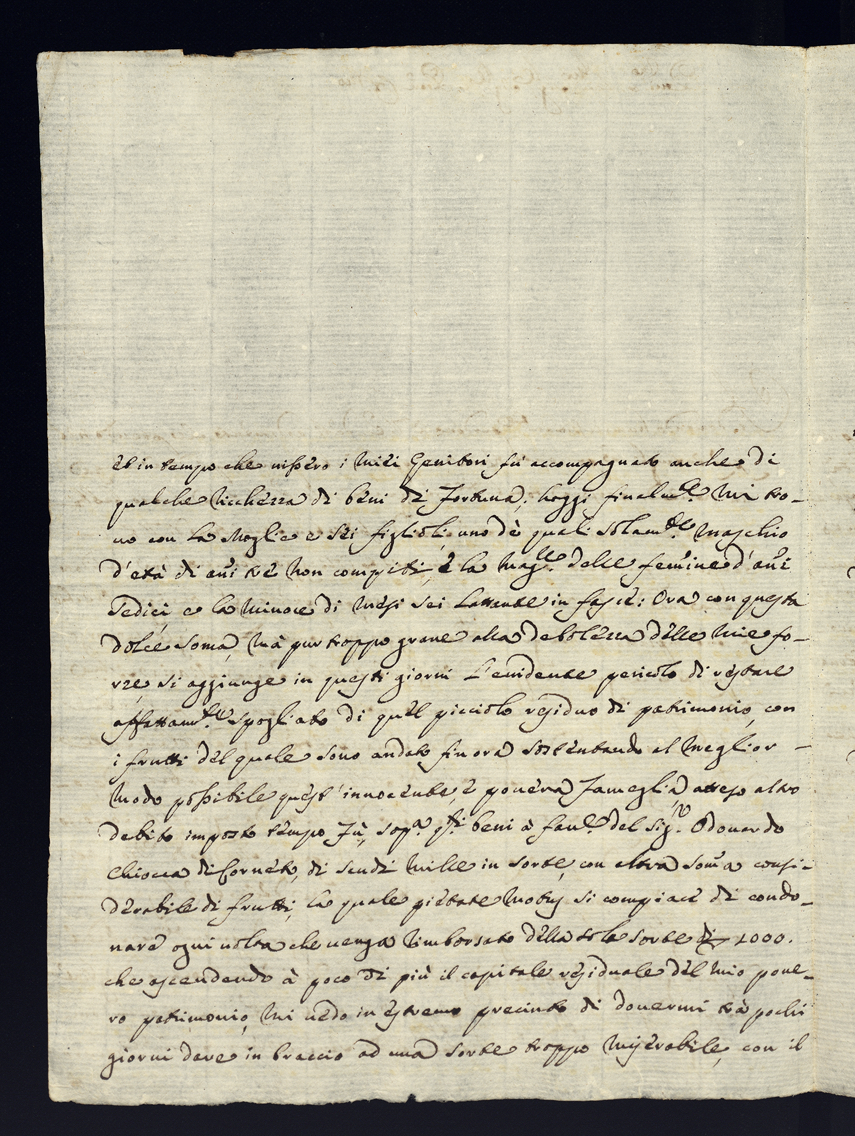 et in tempo che vissero i miei Genitori fù accompagnato anche di
qualche ricchezza di beni di Fortuna; hoggi finalm.te mi tro-
uo con la Moglie e sei figlioli, uno dè quali solam.te maschio
d'età di añi trè non compiti, e la magg.re delle femine d'añi
sedici, e la minore di mesi sei lattante in fascie: Ora con questa
dolce soma, mà pur troppo graue alla debolezza delle mie fo-
rze si aggiunge in questi giorni l'euidente pericolo di restare
affattam.te spogliato di quel picciolo residuo di patrimonio, con
i frutti del quale sono andato fin ora sostentando al meglior -
modo possibile quest'innocente, e pouera Fameglia atteso altro
debito imposto tempo fù, sop.a q.sti beni à fau.e del Sig.r Odoardo
Chiocca di Corneto, di scudi mille in sorte, con altra som̃a consi-
derabile di frutti, la quale pietate motus si compiace di condo-
nare ogni uolta che uenga rimborsato della sola sorte di 1000.
che ascendendo à poco di più il capitale residuale del mio poue-
ro patrimonio, mi uedo in estremo precinto di douermi trà pochi
giorni dare in braccio ad una sorte troppo miserabile, con il